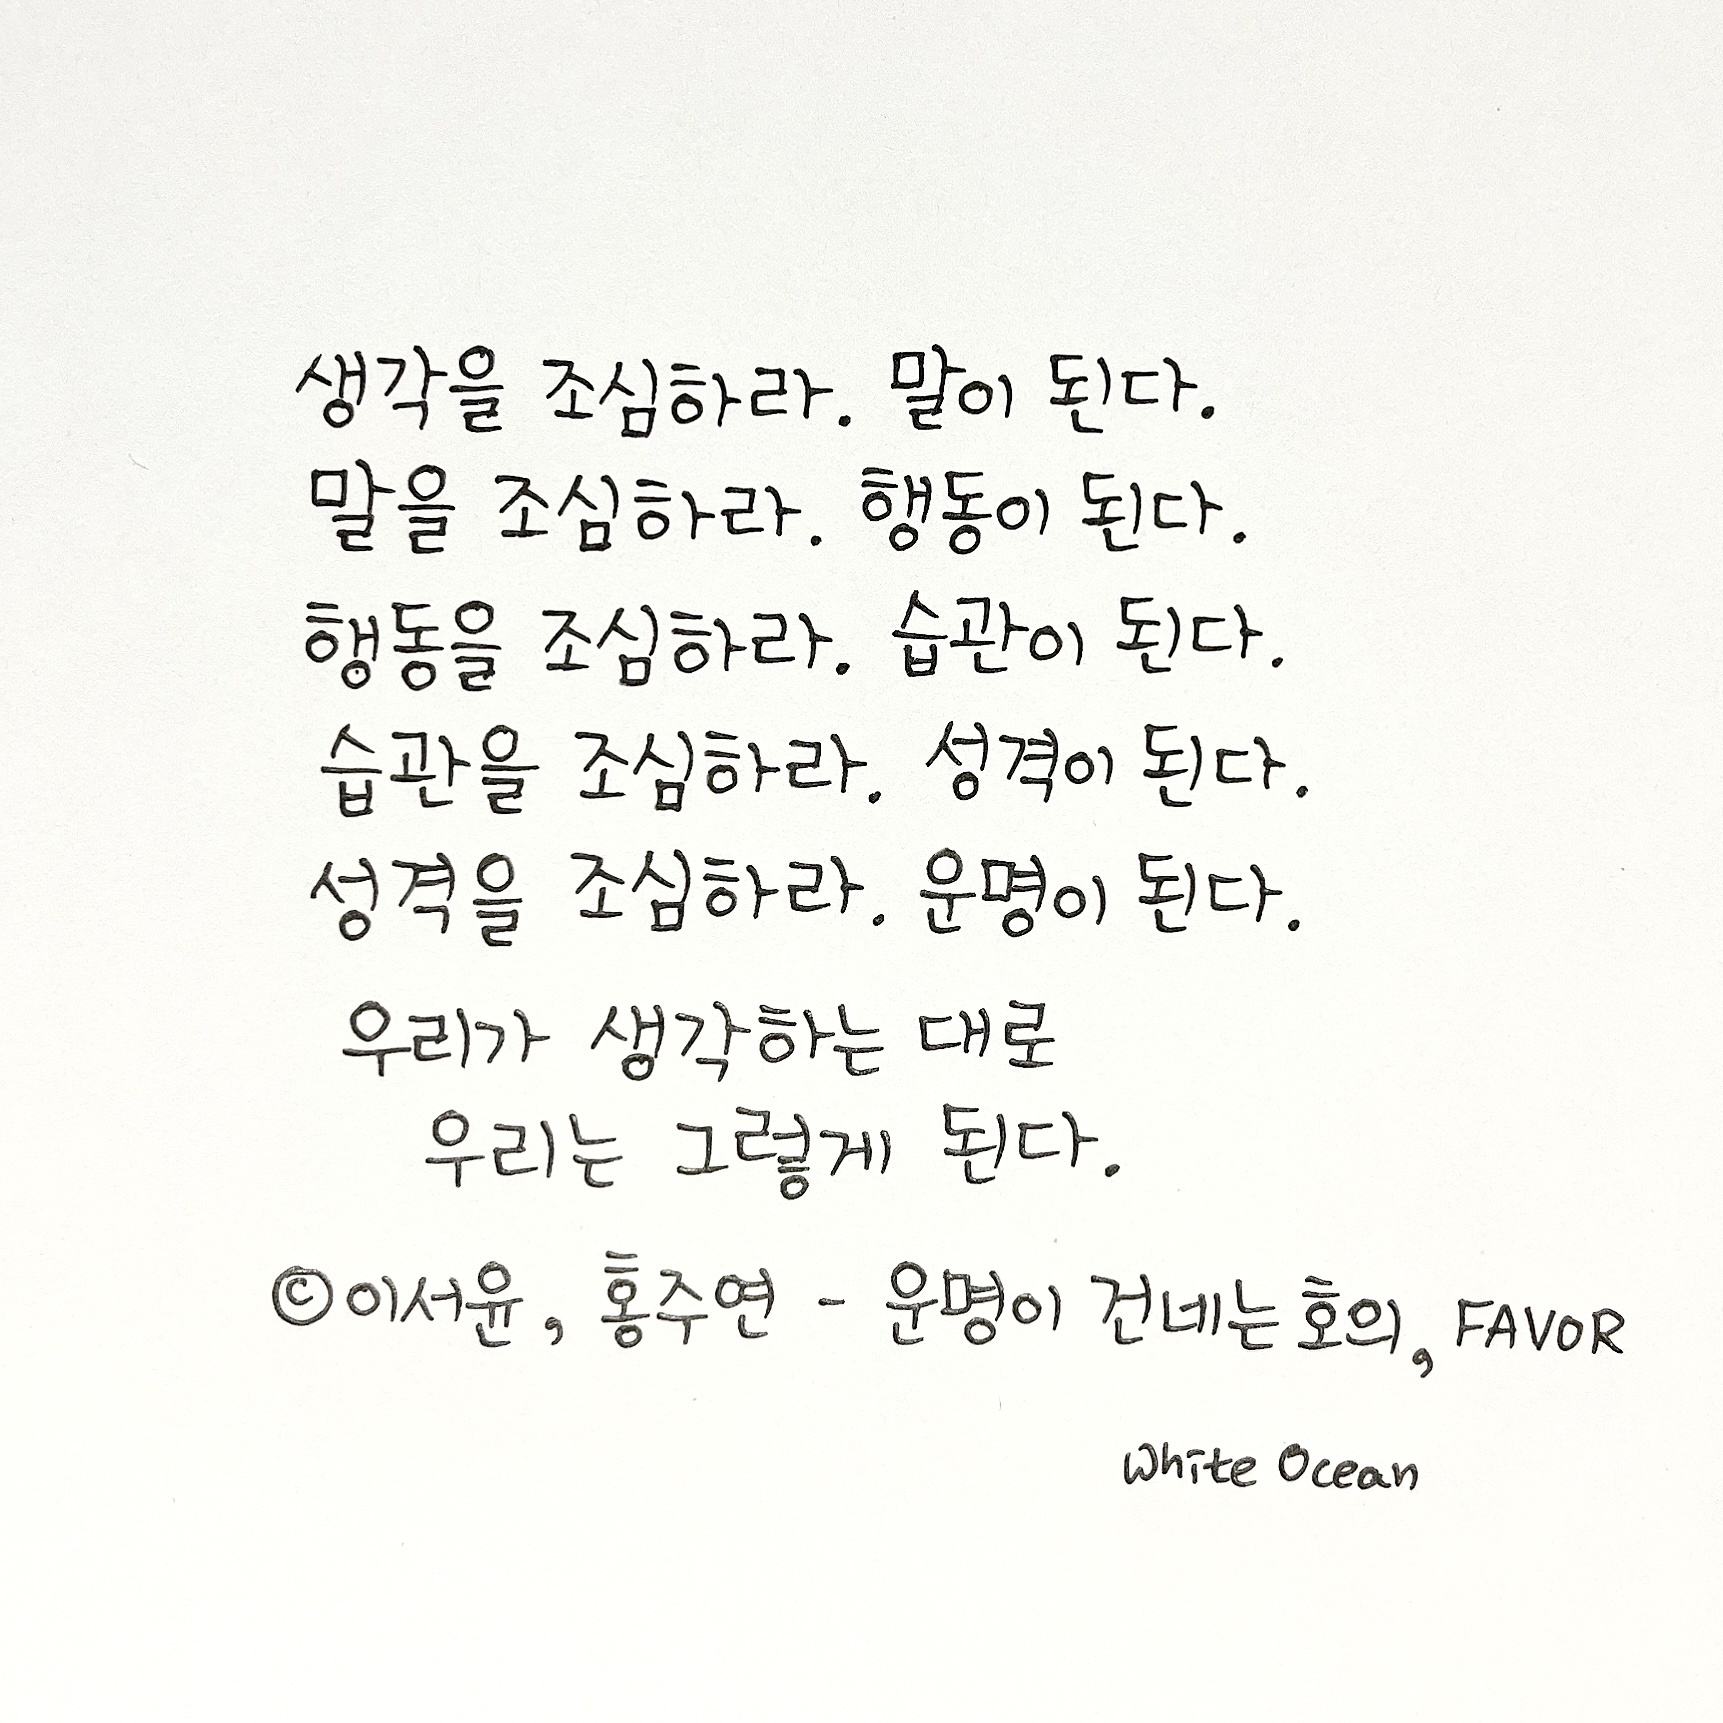 생각을 조심하라. 말이 된다.
말을 조심하라. 행동이 된다.
행동을 조심하라. 습관이 된다.
습관을 조심하라. 성격이 된다.
성격을 조심하라. 운명이 된다.
우리가 생각하는 대로
우리는 그렇게 된다.
©이서윤, 홍주연 - 운명이 건네는 호의, FAVOR
White Ocean